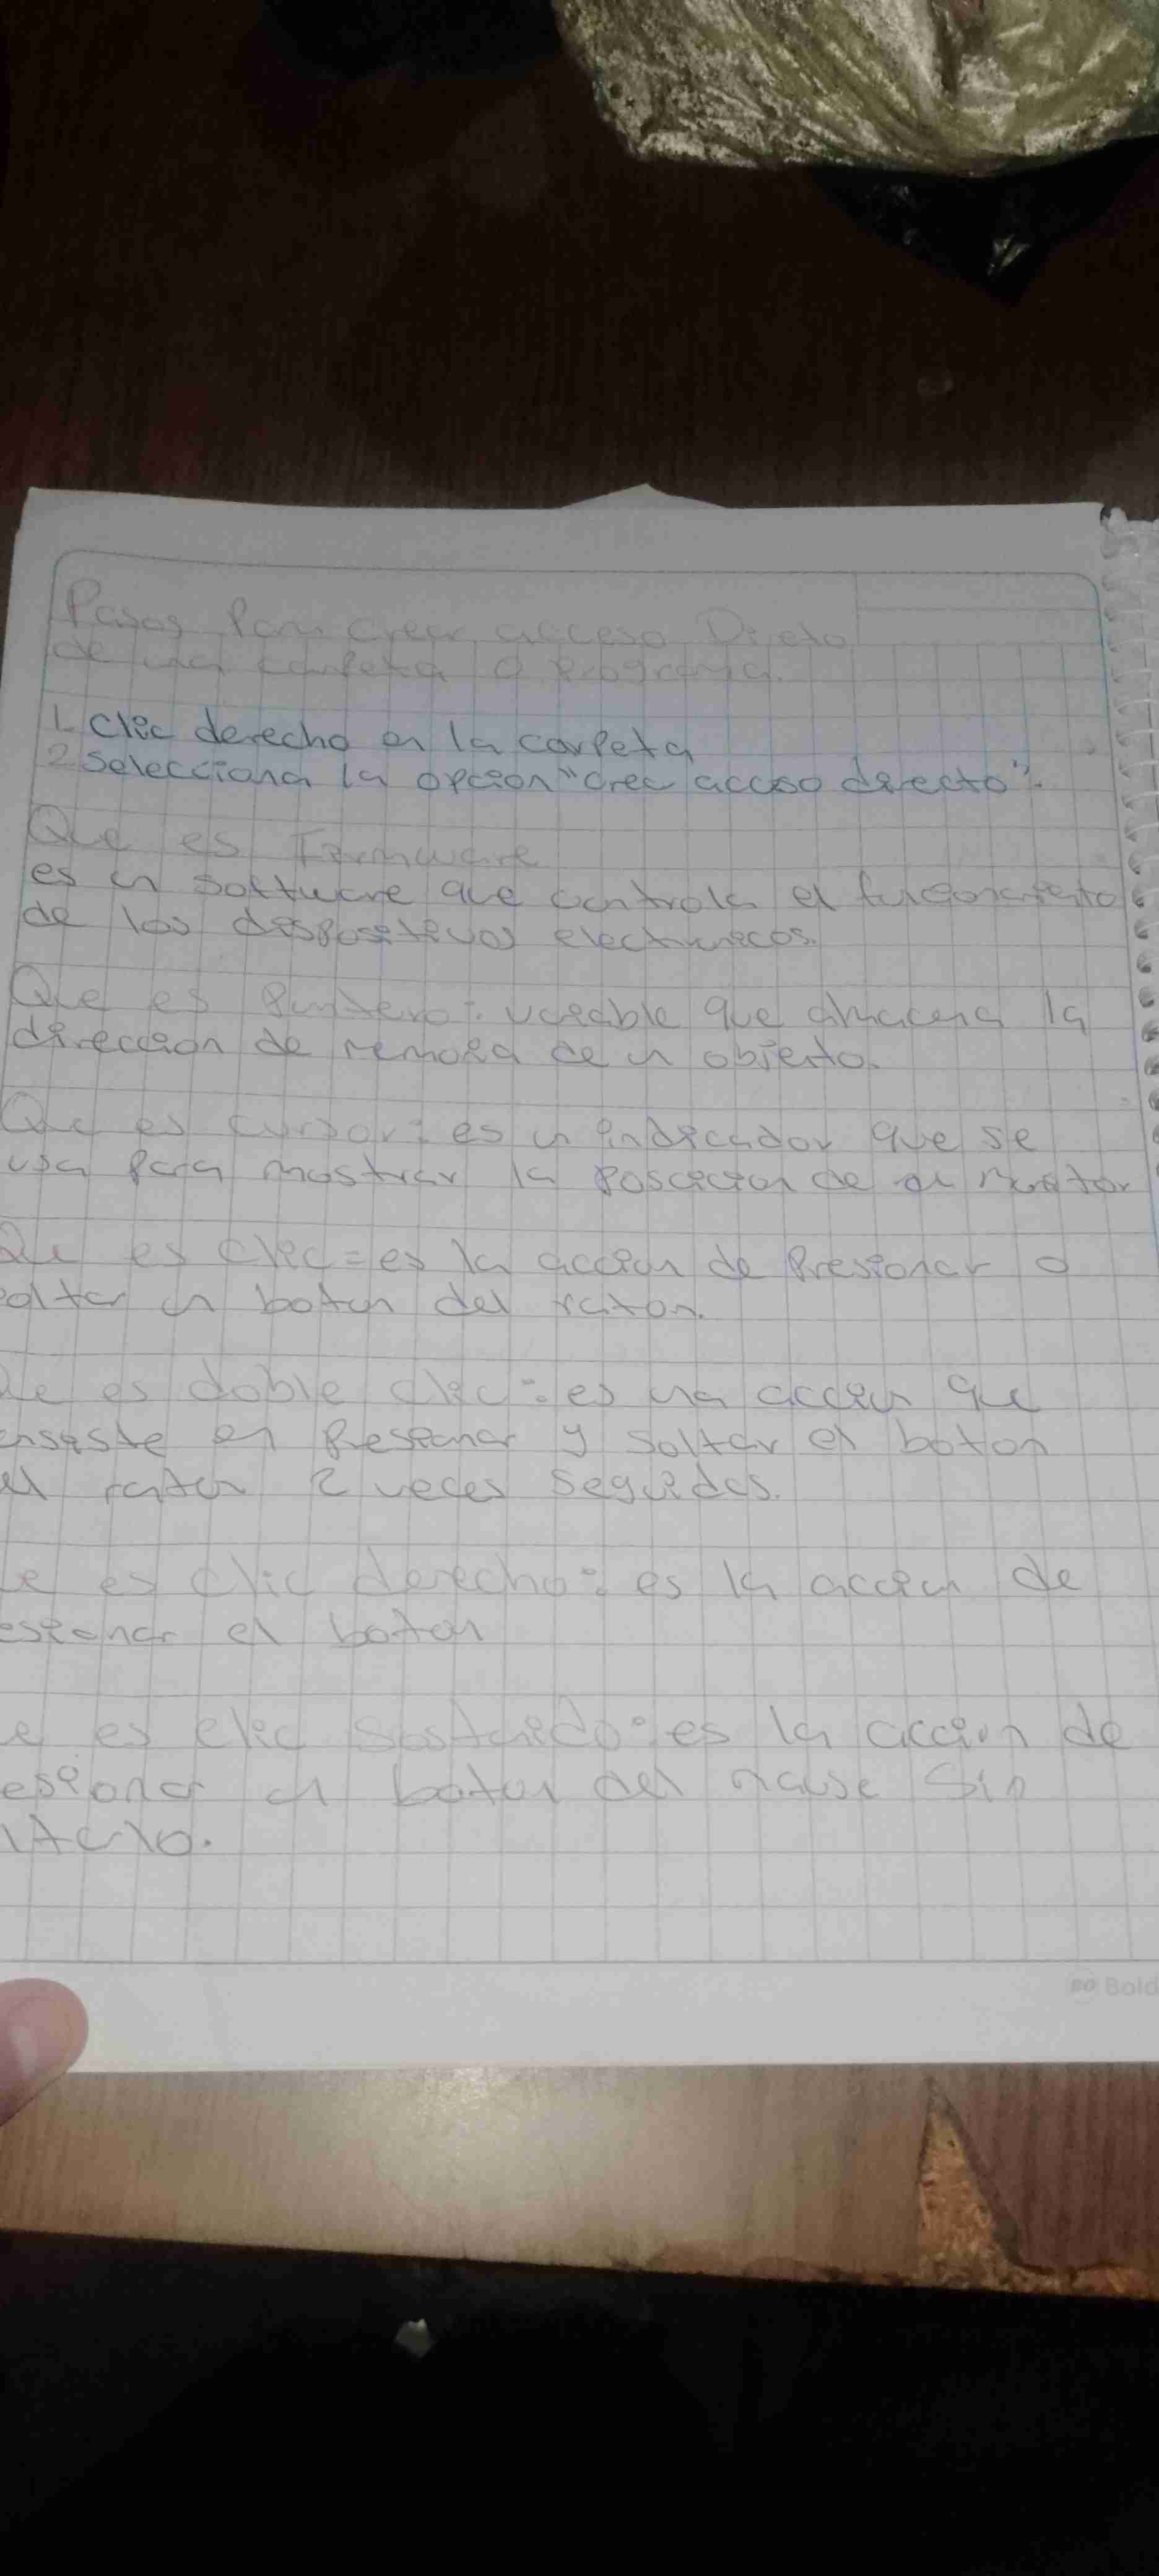 Pasos Para crear acceso Direto
de una carpeta o Programa.
1. Clic derecho en la carpeta
2 Selecciona la opcion "crear acceso directo".
Que es Firmware
es un software que controla el funcionamiento
de los dispositivos electronicos.
Que es Puntero: variable que almacena la
direccion de memoria de un objeto.
Que es cursor: es un indicador que se
usa para mostrar la posicion de un monitor
Que es clic = es la accion de Presionar o
oltar un boton del raton.
ue es doble clic: es una accion que
onsiste en Presionar y soltar el boton
el raton 2 veces seguidas.
ue es clic derecho: es la accion de
esionar el boton
e es clic sostenido: es la accion de
esionar el boton del mause sin
ltarlo.
Bold